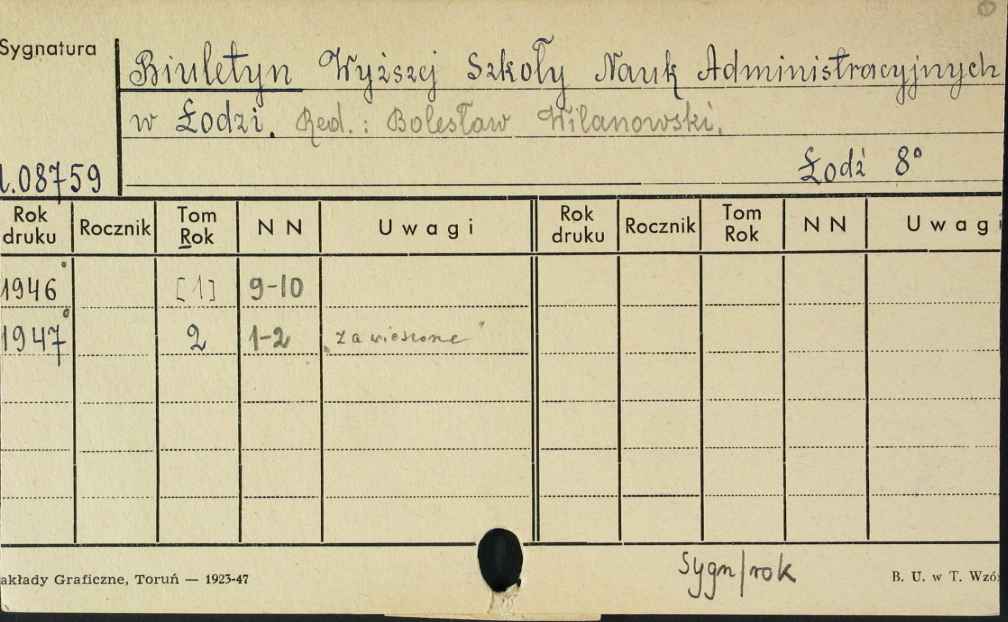 Sygnatura
Biuletyn Wyższej Szkoły Nauk Administracyjnych
w Łodzi. Red.: Bolesław Wilanowski.
Łodź 8°
08759
Rok druku Rocznik Tom Rok N N Uwagi Rok druku Rocznik Tom Rok N N Uwagi
1946 [1] 9-10
1947 2 1-2 "zawieszone"
Sygn/rok
akłady Graficzne, Toruń — 1923-47 B. U. w T. Wzó